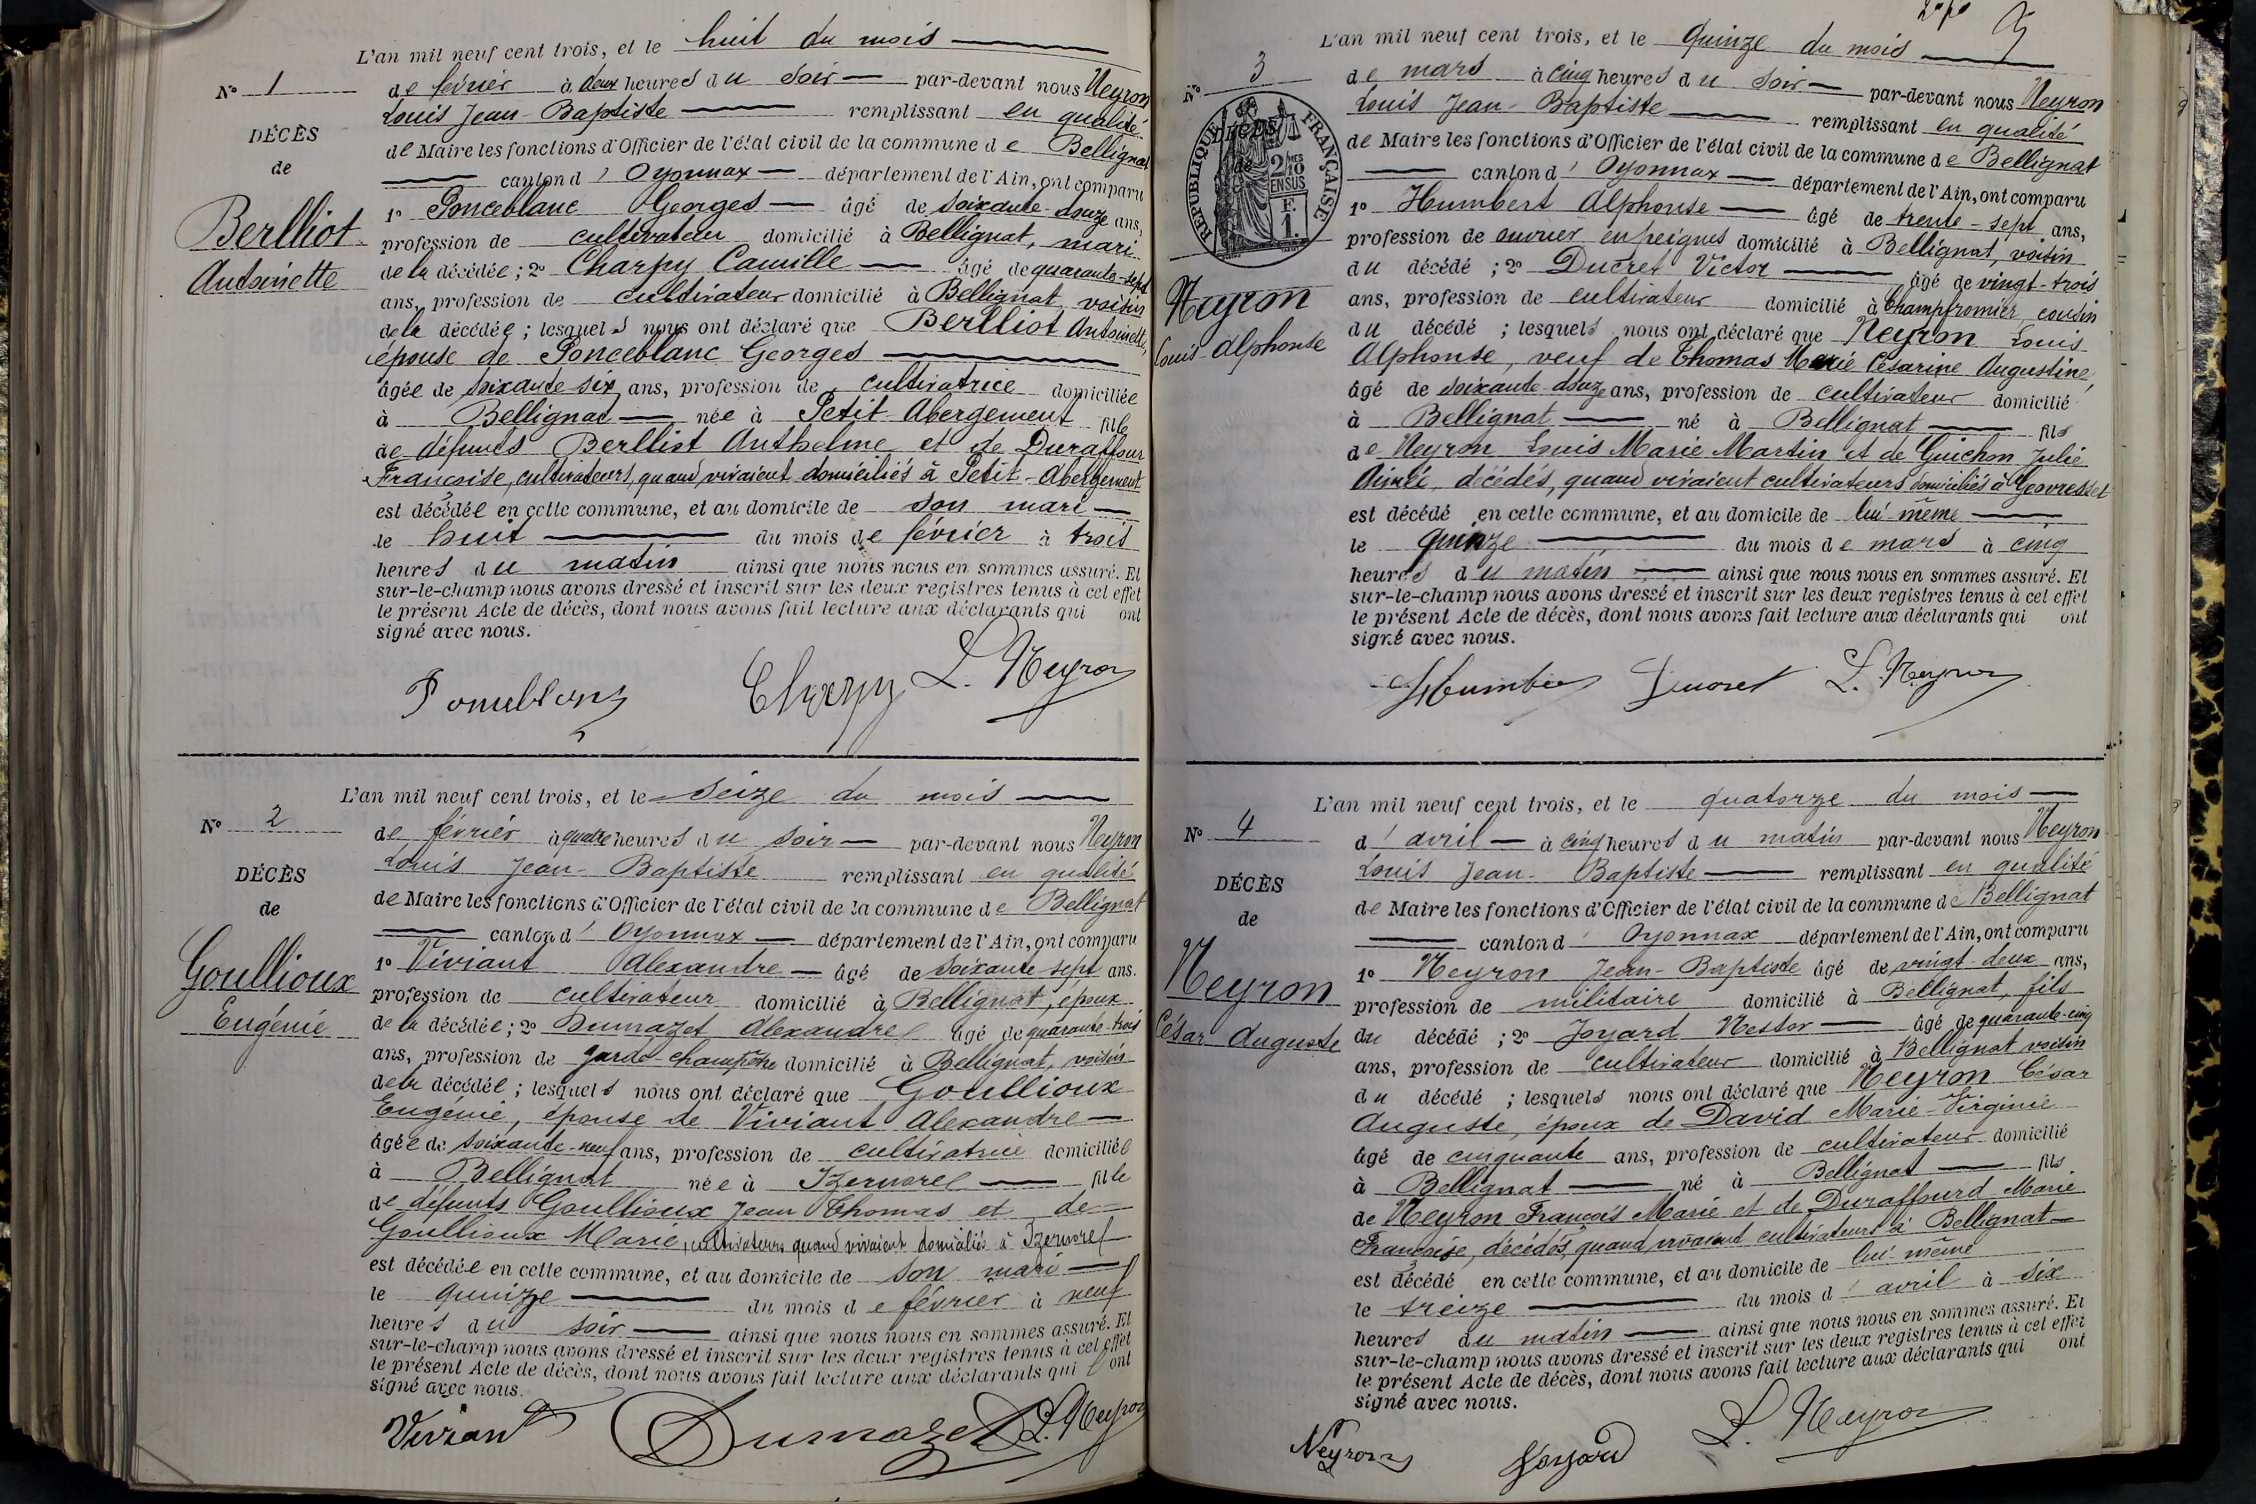 L'an mil neuf cent trois, et le huit du mois
N° 1
de février à deux heures du soir par-devant nous Neyron
Louis Jean-Baptiste remplissant en qualité
DÉCÈS
de Maire les fonctions d'Officier de l'état civil de la commune de Bellignat
de
canton d'Oyonnax département de l'Ain, ont comparu
Berlliot
Antoinette
1° Ponceblanc Georges âgé de soixante-douze ans,
profession de cultivateur domicilié à Bellignat, mari
de la décédée ; 2° Charpy Camille âgé de quarante-sept
ans, profession de cultivateur domicilié à Bellignat, voisin
de la décédée ; lesquels nous ont déclaré que Berlliot Antoinette,
épouse de Ponceblanc Georges
âgée de soixante six ans, profession de cultivatrice domiciliée
à Bellignat née à Petit-Abergement fille
de défunts Berlliot Anthelme et de Duraffour
Françoise, cultivateurs, quand vivaient domiciliés à Petit-Abergement
est décédée en cette commune, et au domicile de son mari
le huit du mois de février à trois
heures du matin ainsi que nous nous en sommes assuré. Et
sur-le-champ nous avons dressé et inscrit sur les deux registres tenus à cet effet
le présent Acte de décès, dont nous avons fait lecture aux déclarants qui ont
signé avec nous.
Ponceblanc Charpy L. Neyron
L'an mil neuf cent trois, et le seize du mois
N° 2
de février à quatre heures du soir par-devant nous Neyron
Louis Jean-Baptiste remplissant en qualité
DÉCÈS
de Maire les fonctions d'Officier de l'état civil de la commune de Bellignat
de
canton d'Oyonnax département de l'Ain, ont comparu
Goullioux
Eugénie
1° Viviant Alexandre âgé de soixante sept ans.
profession de cultivateur domicilié à Bellignat, époux
de la décédée ; 2° Dumazet Alexandre âgé de quarante-trois
ans, profession de garde-champêtre domicilié à Bellignat, voisin
de la décédée ; lesquels nous ont déclaré que Goullioux
Eugénie, épouse de Viviant Alexandre
âgée de soixante-neuf ans, profession de cultivatrice domiciliée
à Bellignat née à Izernorel fille
de défunts Goullioux Jean Thomas et de
Goullioux Marie, cultivateurs quand vivaient domiciliés à Izernorel
est décédée en cette commune, et au domicile de son mari
le quinze du mois de février à neuf
heures du soir ainsi que nous nous en sommes assuré. Et
sur-le-champ nous avons dressé et inscrit sur les deux registres tenus à cet effet
le présent Acte de décès, dont nous avons fait lecture aux déclarants qui ont
signé avec nous.
Viviant Dumazet L. Neyron
L'an mil neuf cent trois, et le quinze du mois
N° 3
de mars à cinq heures du soir par-devant nous Neyron
Louis Jean-Baptiste remplissant en qualité
DÉCÈS
de
RÉPUBLIQUE FRANÇAISE
2/10 MES EN SUS
F. 1.
de Maire les fonctions d'Officier de l'état civil de la commune de Bellignat
canton d'Oyonnax département de l'Ain, ont comparu
Neyron
Louis Alphonse
1° Humbert Alphonse âgé de trente-sept ans,
profession de ouvrier en peignes domicilié à Bellignat, voisin
du décédé ; 2° Ducret Victor âgé de vingt-trois
ans, profession de cultivateur domicilié à Champfromier, cousin
du décédé ; lesquels nous ont déclaré que Neyron Louis
Alphonse, veuf de Thomas Marie Césarine Augustine,
âgé de soixante-douze ans, profession de cultivateur domicilié
à Bellignat né à Bellignat fils
de Neyron Louis Marie Martin et de Guichon Julie
Aimée, décédés, quand vivaient cultivateurs domiciliés à Geovresset
est décédé en cette commune, et au domicile de lui-même
le quinze du mois de mars à cinq
heures du matin ainsi que nous nous en sommes assuré. Et
sur-le-champ nous avons dressé et inscrit sur les deux registres tenus à cet effet
le présent Acte de décès, dont nous avons fait lecture aux déclarants qui ont
signé avec nous.
Humbert Ducret L. Neyron
L'an mil neuf cent trois, et le quatorze du mois
N° 4
d'avril à cinq heures du matin par-devant nous Neyron
Louis Jean-Baptiste remplissant en qualité
DÉCÈS
de Maire les fonctions d'Officier de l'état civil de la commune de Bellignat
de
canton d'Oyonnax département de l'Ain, ont comparu
Neyron
César Auguste
1° Neyron Jean-Baptiste âgé de vingt-deux ans,
profession de militaire domicilié à Bellignat, fils
du décédé ; 2° Joyard Nestor âgé de quarante-cinq
ans, profession de cultivateur domicilié à Bellignat voisin
du décédé ; lesquels nous ont déclaré que Neyron César
Auguste, époux de David Marie-Virginie
âgé de cinquante ans, profession de cultivateur domicilié
à Bellignat né à Bellignat fils
de Neyron François Marie et de Duraffourd Marie
Françoise, décédés, quand vivaient cultivateurs à Bellignat
est décédé en cette commune, et au domicile de lui-même
le treize du mois d'avril à six
heures du matin ainsi que nous nous en sommes assuré. Et
sur-le-champ nous avons dressé et inscrit sur les deux registres tenus à cet effet
le présent Acte de décès, dont nous avons fait lecture aux déclarants qui ont
signé avec nous.
Neyron Joyard L. Neyron